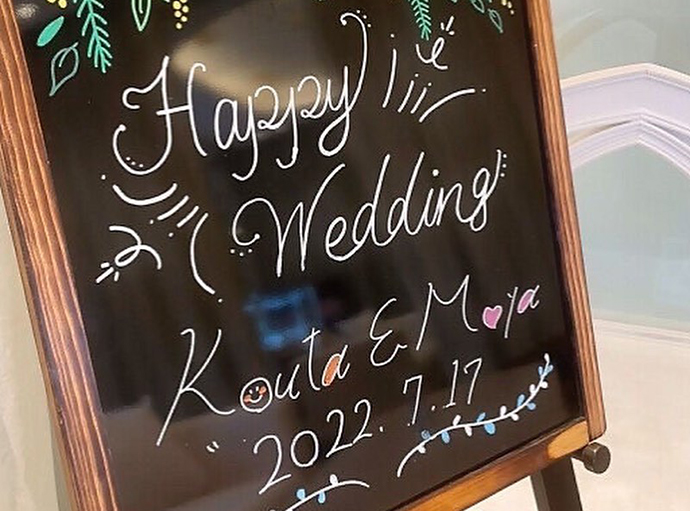 Happy
Wedding
Kouta & Moya
2022. 7.17